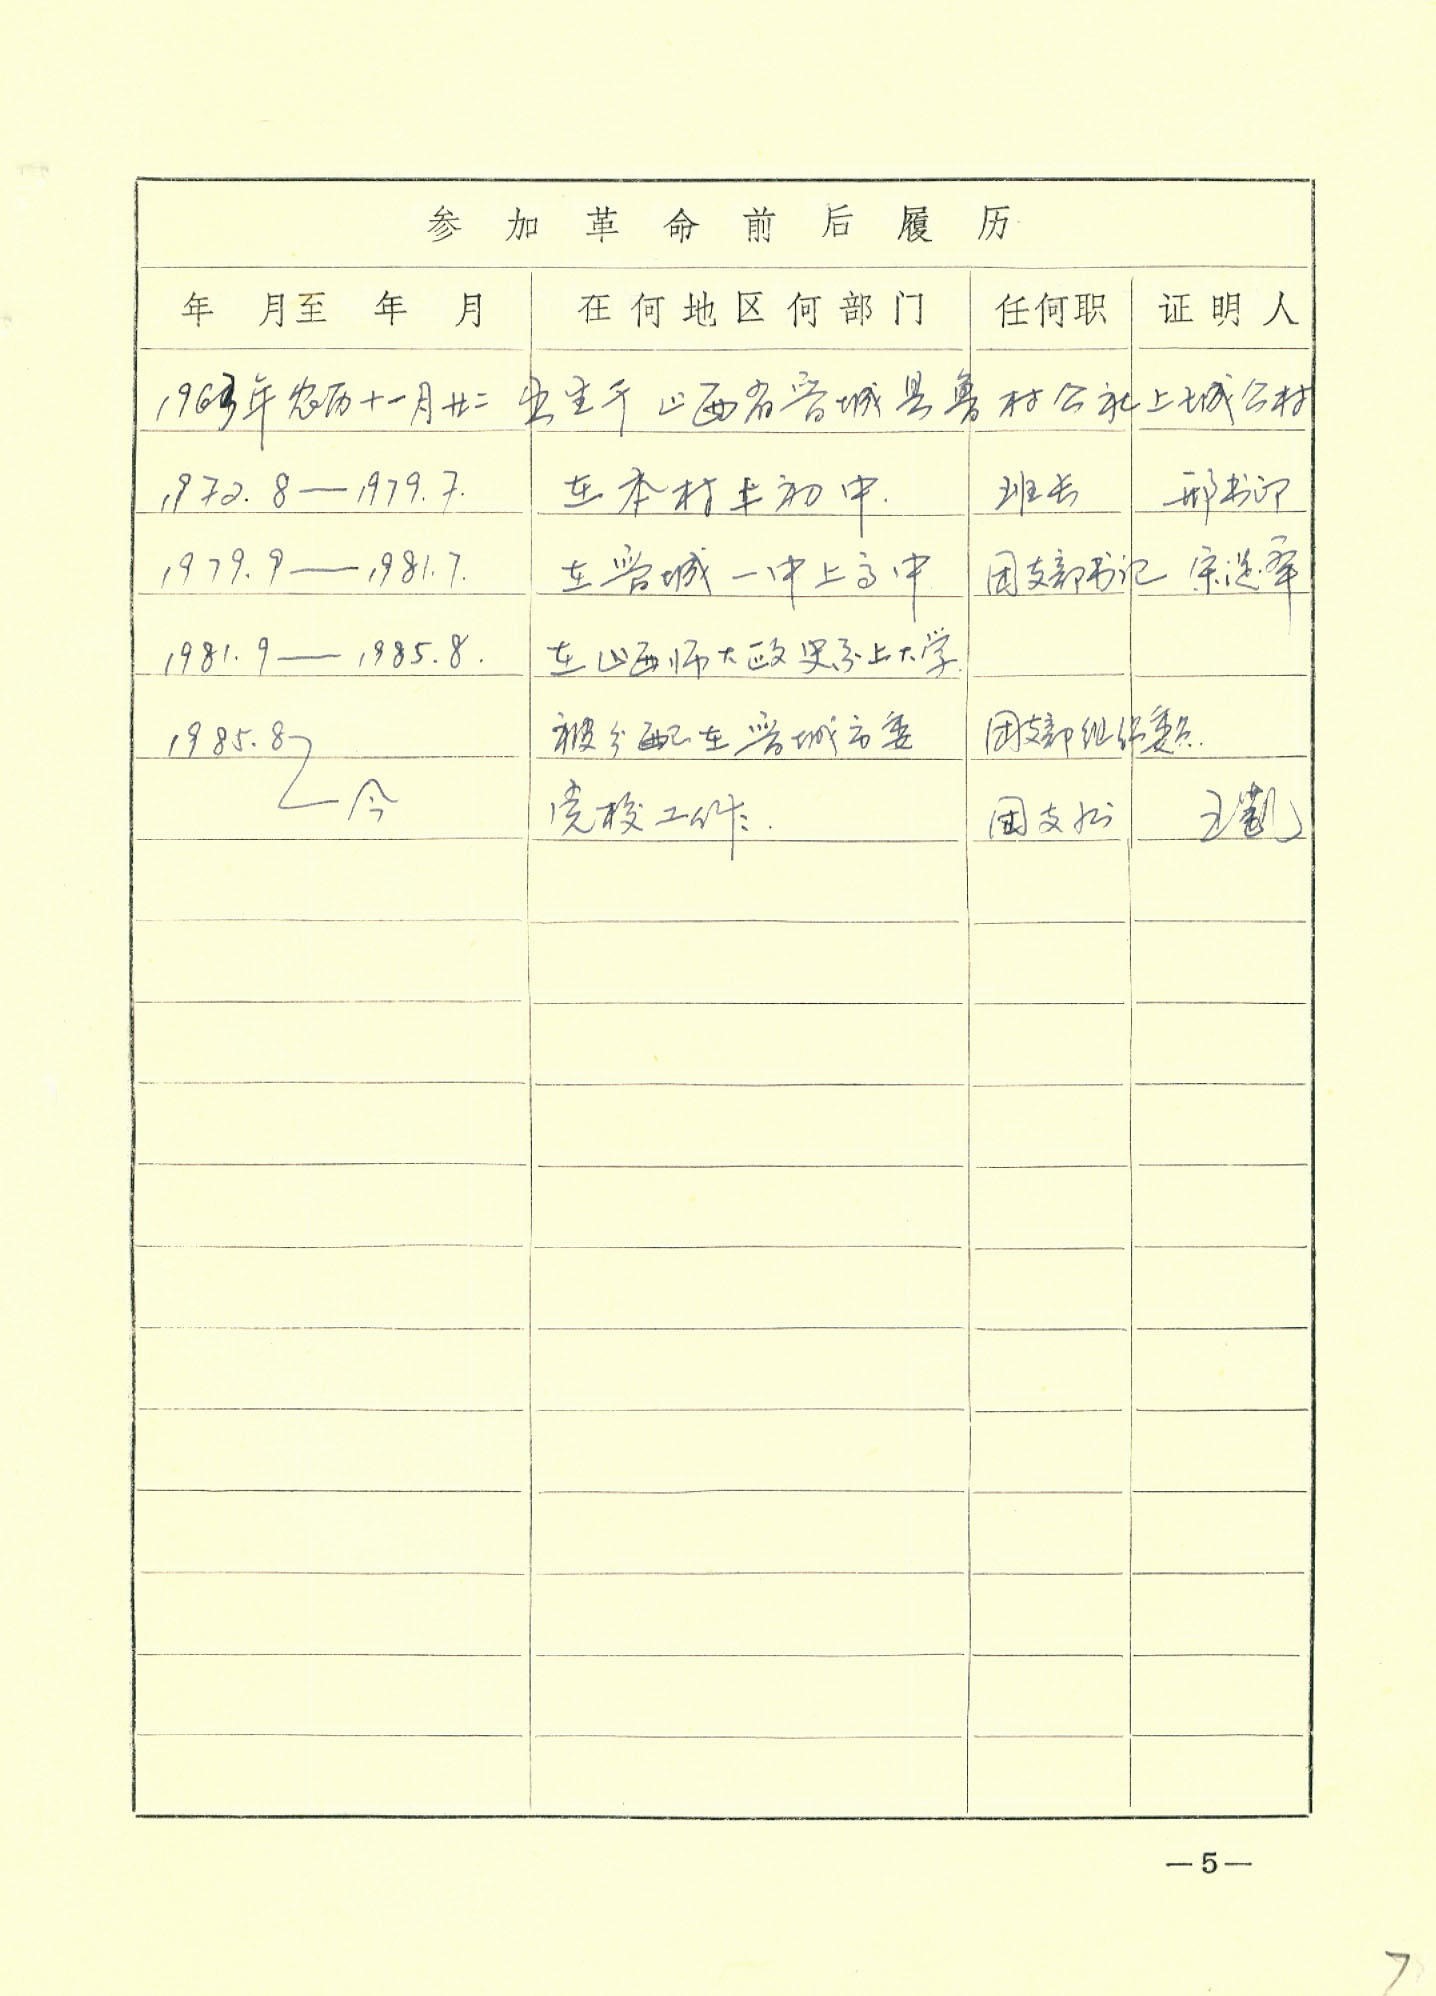 参加革命前后履历
年 月至 年 月 在何地区何部门 任何职 证明人
1963年农历十一月廿二 出生于山西省晋城县鲁村公社上城公村
1972.8—1979.7. 在本村上初中. 班长 邢书印
1979.9—1981.7. 在晋城一中上高中 团支部书记 宋选军
1981.9—1985.8. 在山西师大政史系上大学.
1985.8 被分配在晋城市委 团支部组织委员.
今 党校工作. 团支书 王凯
—5—
7